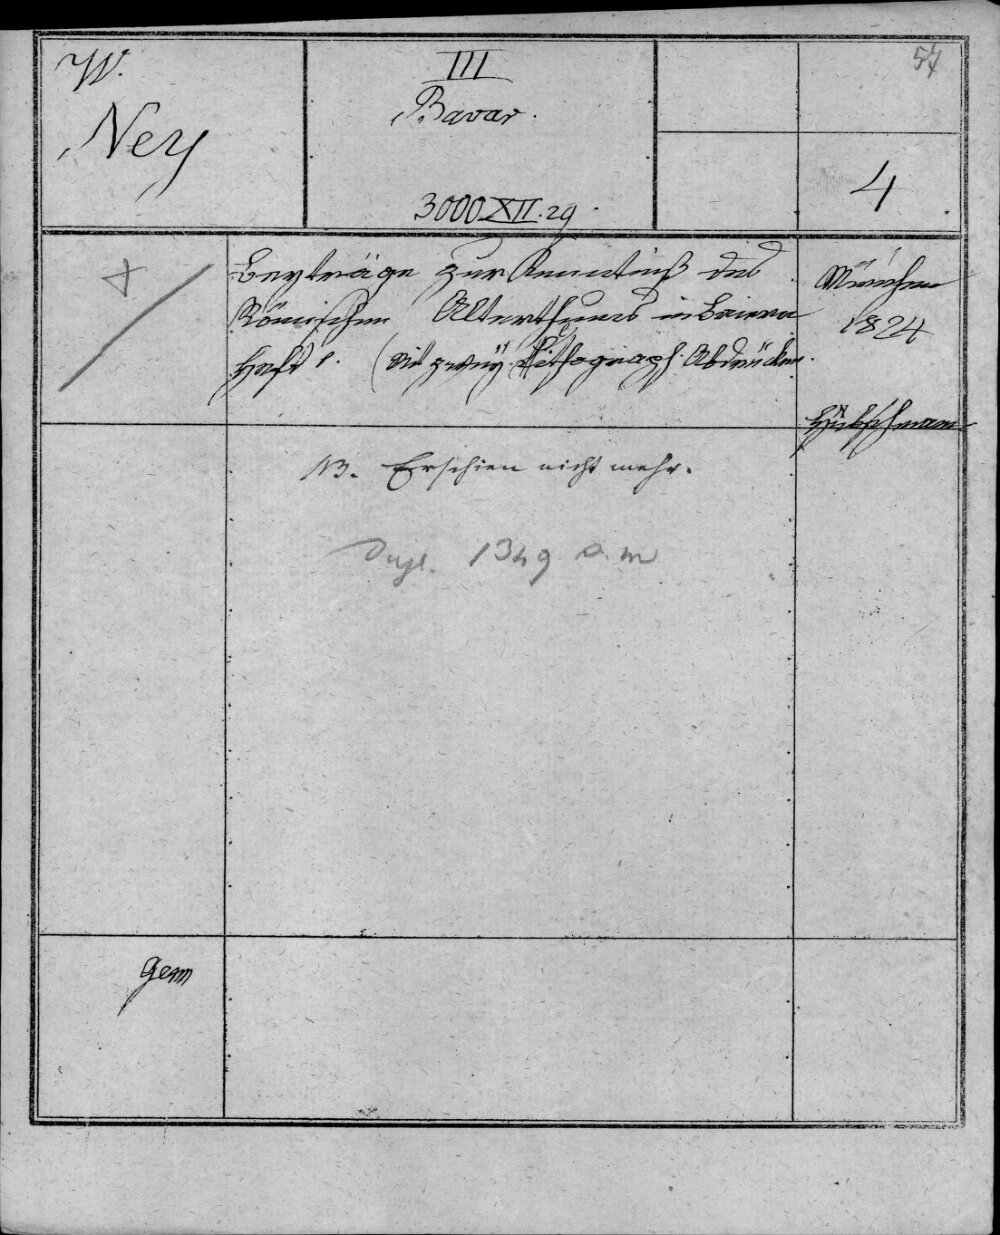 W.
Ney
III
Bavar.
3000 XII. 29.
54
4
Beyträge zur Kenntniß des
Römischen Alterthums in Baiern
Heft 1. (Mit zwey lithograph. Abdrücken.
München
1824
Hübschmann
NB. Erschien nicht mehr.
Dupl. 1349 a. m
Germ